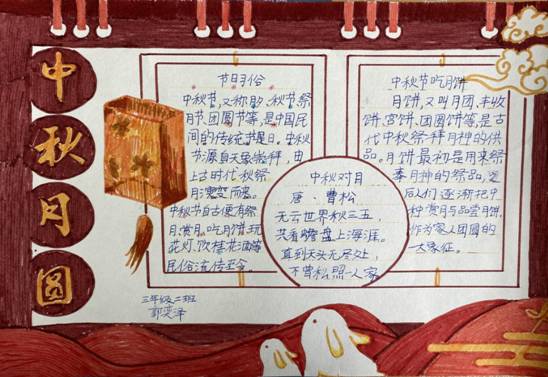 中
秋
月
圆
节日习俗
中秋节,又称
秋节祭
月节、团圆节等,是中国民
间的传统节日。中秋
节源自天象崇拜,由
上古时代秋祭
月演变而来。
中秋节自古便有祭
月、赏月、吃月饼、玩
花灯、饮桂花酒等
民俗流传至今
中秋对月
唐、曹松
无云世界秋三五,
共看蟾盘上海涯。
直到天头无尽处,
不曾私照一人家
中秋节吃月饼
月饼,又叫月团、丰收
饼、宫饼、团圆饼等,是古
代中秋祭拜月神的供
品。月饼最初是用来祭
奉月神的祭品,
后人们逐渐把中
月饼,
作为家人团圆的
一大象征。
三年级二班